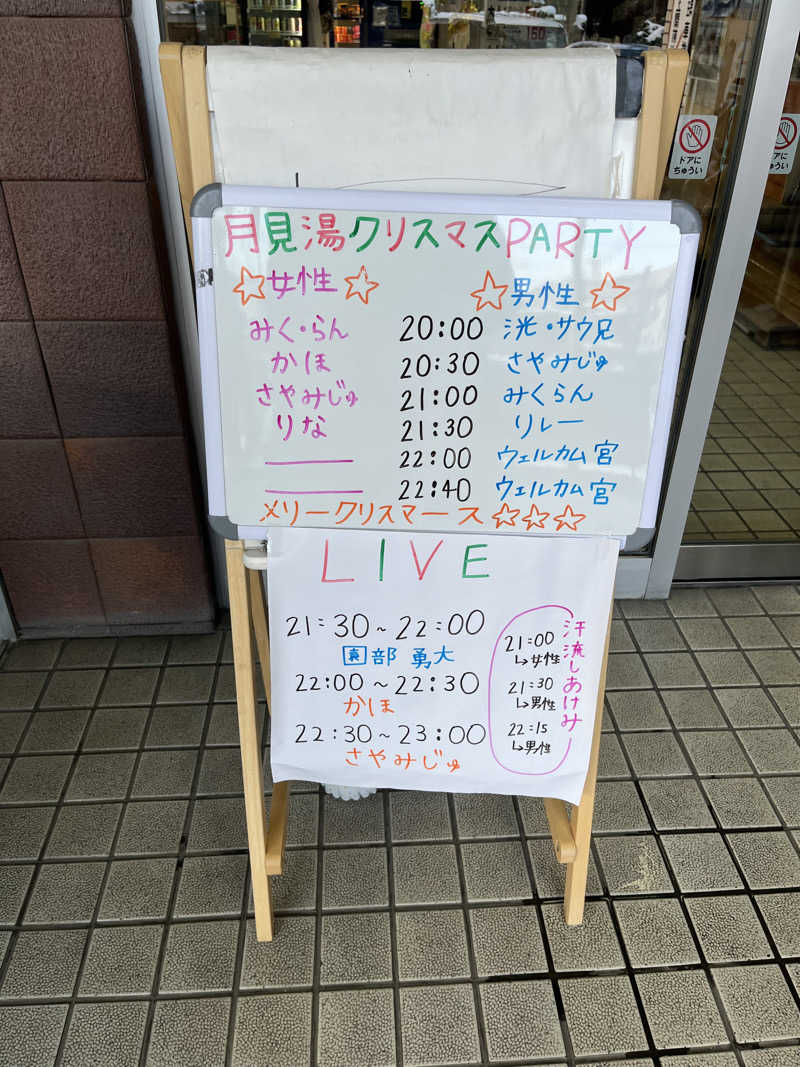 150
ドアに
ちゅうい
ドアに
ちゅうい
月見湯クリスマスPARTY
☆女性☆ ☆男性☆
みく・らん 20:00 洸・サウ兄
かほ 20:30 さやみじゅ
さやみじゅ 21:00 みくらん
りな 21:30 リレー
22:00 ウェルカム宮
22:40 ウェルカム宮
メリークリスマース☆☆☆
LIVE
21:30~22:00
園部 勇大
22:00~22:30
かほ
22:30~23:00
さやみじゅ
汗流しあけみー
21:00
↳女性
21:30
↳男性
22:15
↳男性